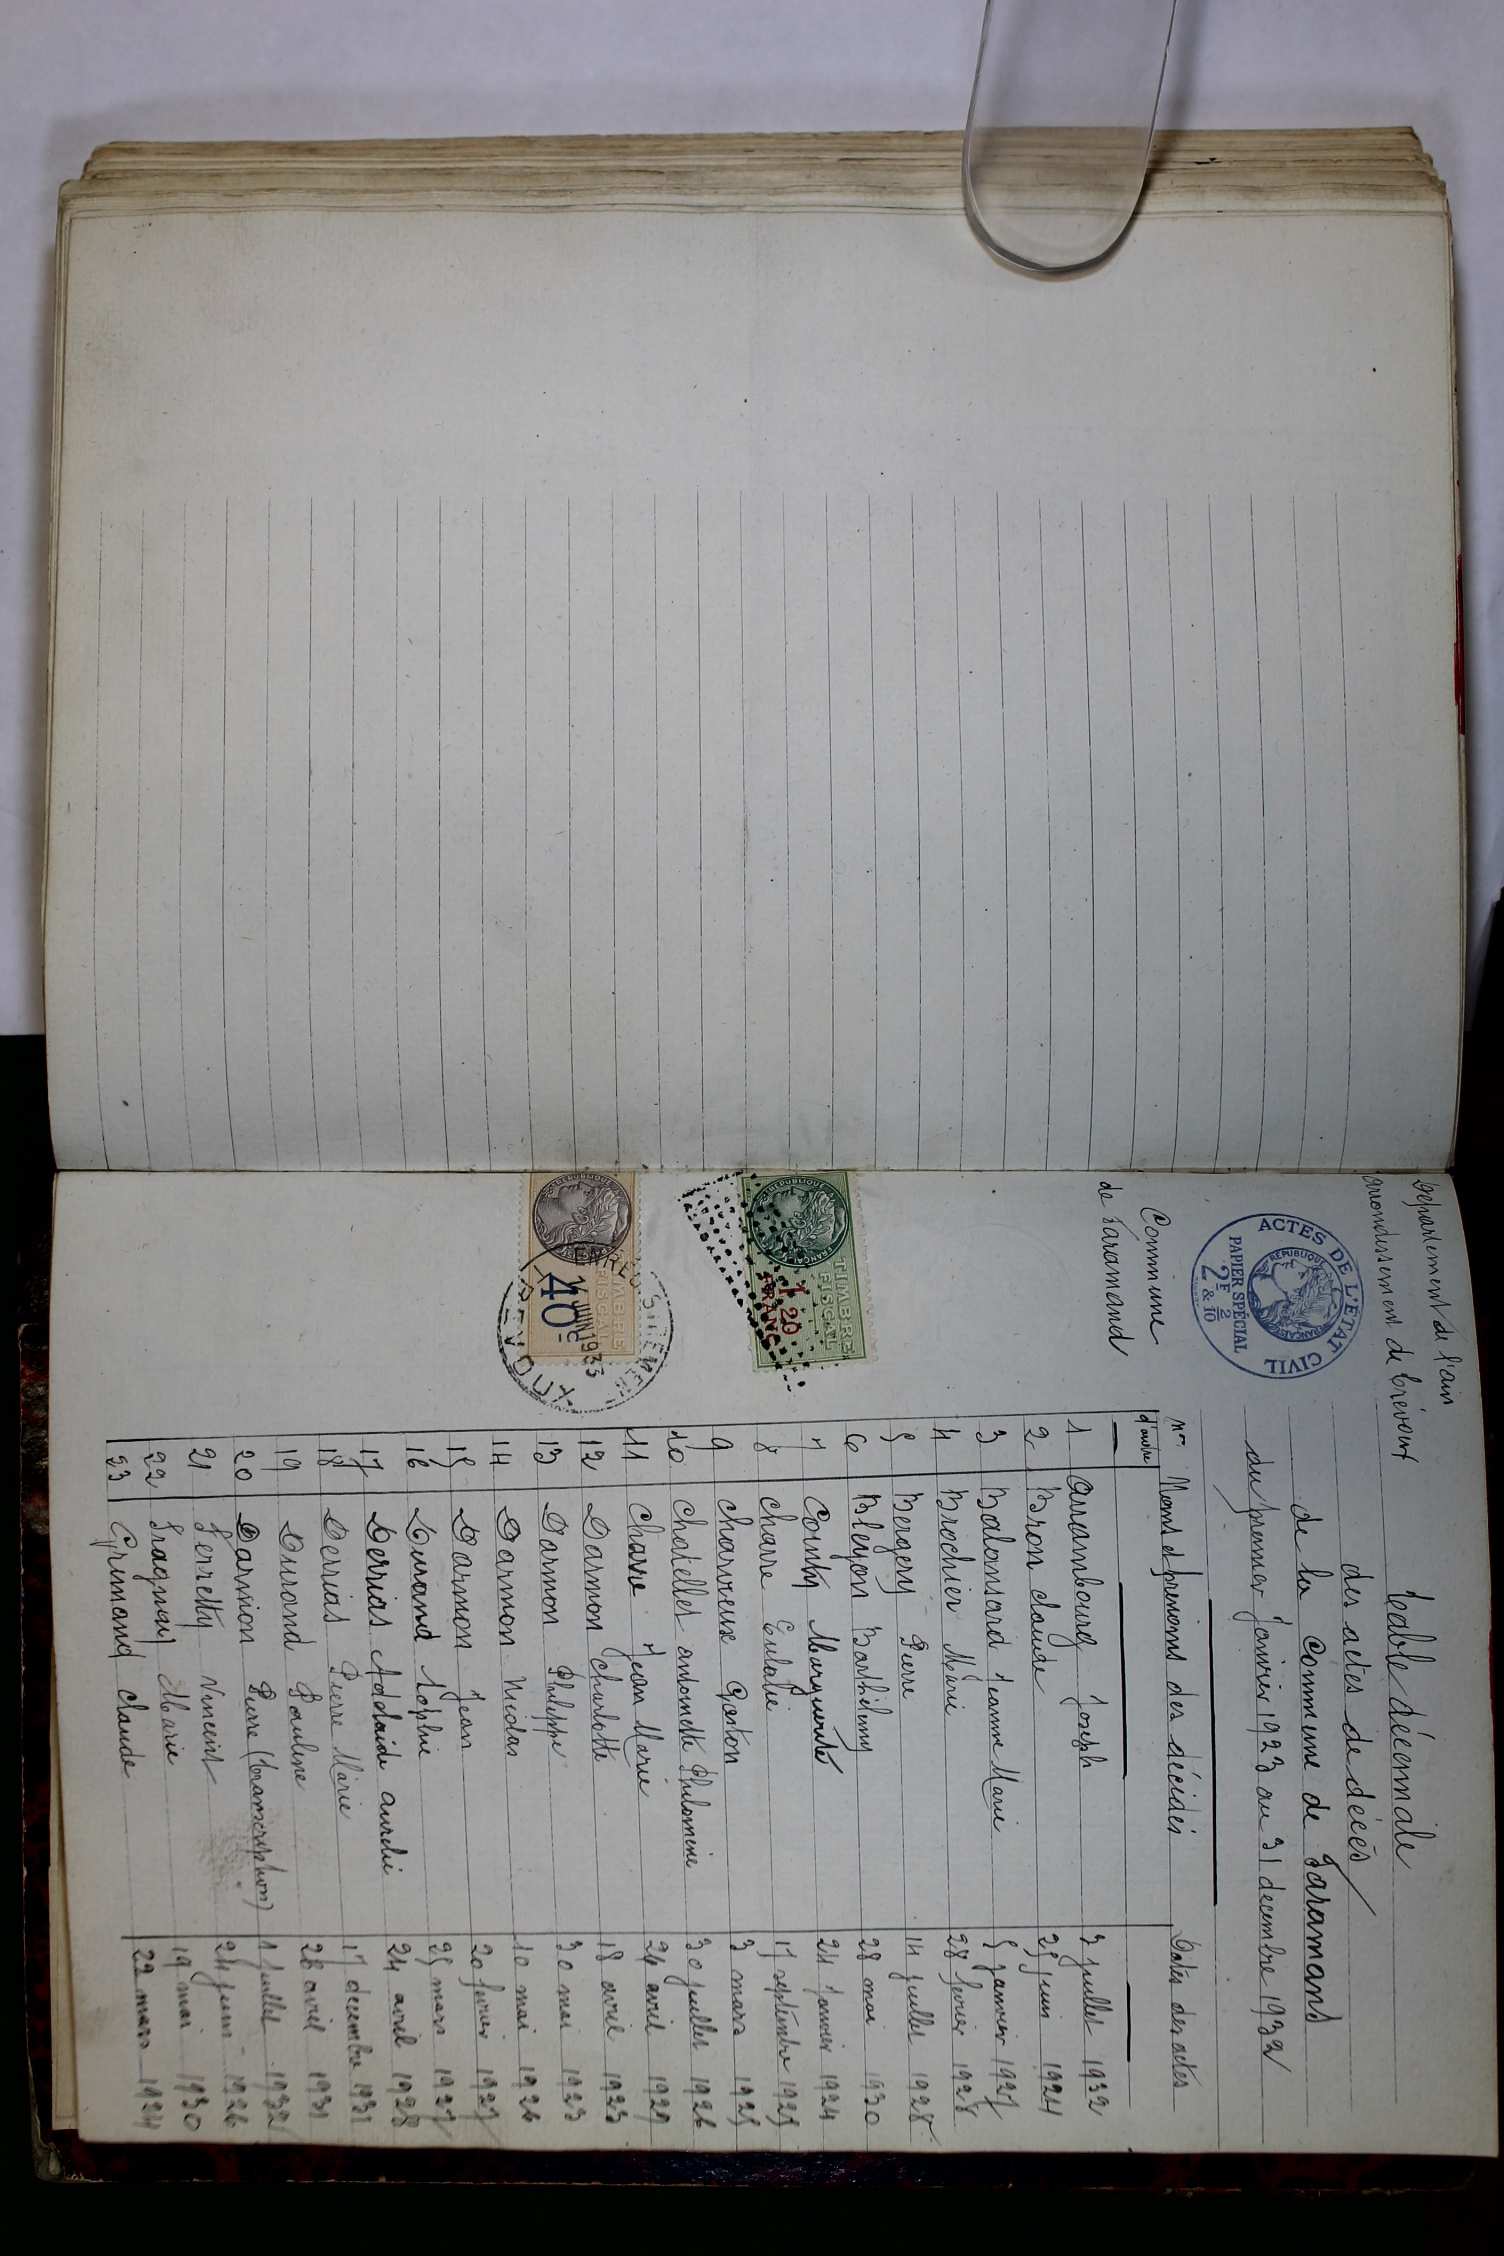 Département de l'ain
arrondissement de Trévoux
ACTES DE L'ÉTAT CIVIL
RÉPUBLIQUE FRANÇAISE
PAPIER SPÉCIAL
2F 2/10 & 10
Commune
de Faramand
TIMBRE
FISCAL
1.20
FRANC
TIMBRE
FISCAL
40c
ENREGISTREMENT
1 JUIN 1933
TREVOUX
Table décennale
des actes de décès
de la commune de Faramand
du premier Janvier 1923 au 31 decembre 1932
Nos d'ordre Noms et prénoms des décédés Dates des actes
1 Arrambourg Joseph 3 juillet 1932
2 Bron claude 25 juin 1924
3 Balonsard Jeanne Marie 5 janvier 1927
4 Brochier Marie 28 fevrier 1928
5 Bergery Pierre 14 juillet 1928
6 Bleyon Barthélemy 28 mai 1930
7 Courty Marguerite 24 janvier 1924
8 charre Eulalie 17 septembre 1925
9 charvieux Gaston 3 mars 1925
10 chatellet antoinette Philomène 30 juillet 1926
11 charre Jean Marie 24 avril 1929
12 Darmon charlotte 18 avril 1923
13 Darmon Philippe 30 mai 1923
14 Darmon Nicolas 10 mai 1926
15 Darmon Jean 20 fevrier 1927
16 Durand Sophie 25 mars 1927
17 Derrias Adélaïde aurelie 24 avril 1928
18 Derrias Pierre Marie 17 decembre 1931
19 Durand Pauline 28 avril 1931
20 Darnion Pierre (transcription) 1 juillet 1932
21 Ferretty Vincent 24 juin 1926
22 Fragnay Marie 19 mai 1930
23 Grimand claude 22 mars 1924